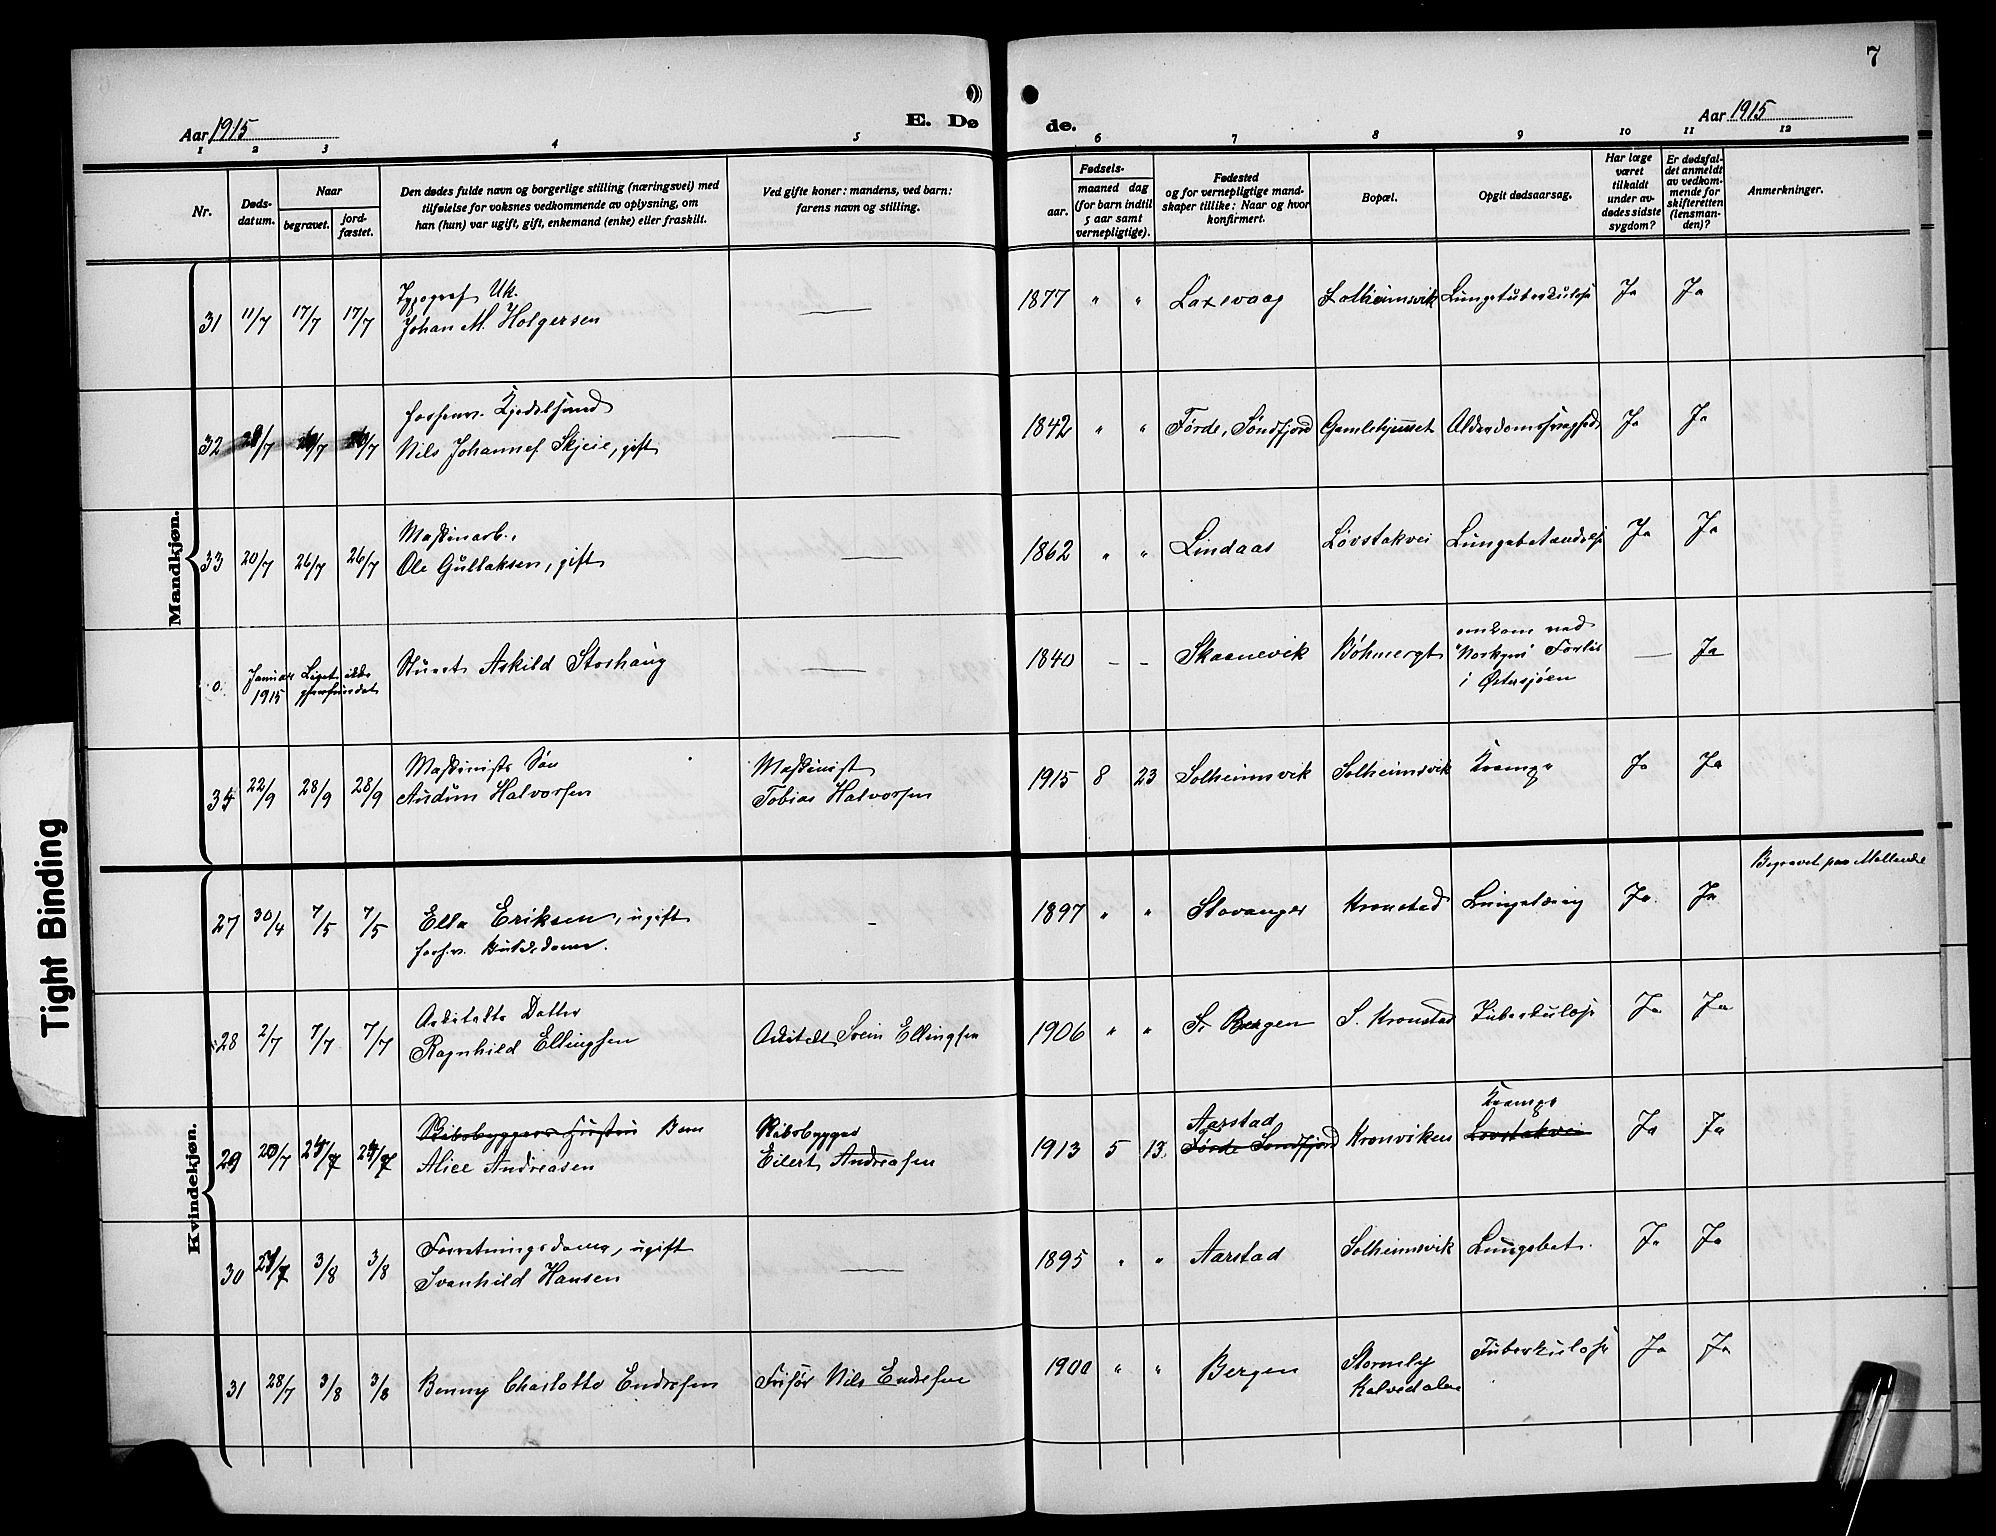 7
Aar 1915
E. Dø
de.
Aar 1915
1 2 3 4 5 6 7 8 9 10 11 12
Nr.
Døds-
datum.
Naar
begravet.
jord-
fæstet.
Den dødes fulde navn og borgerlige stilling (næringsvei) med
tilføielse for voksnes vedkommende av oplysning, om
han (hun) var ugift, gift, enkemand (enke) eller fraskilt.
Ved gifte koner: mandens, ved barn:
farens navn og stilling.
Fødsels-
aar.
maaned dag
(for barn indtil
5 aar samt
vernepligtige).
Fødested
og for vernepligtige mand-
skaper tillike: Naar og hvor
konfirmert.
Bopæl.
Opgit dødsaarsag.
Har læge
været
tilkaldt
under av-
dødes sidste
sygdom?
Er dødsfal-
det anmeldt
av vedkom-
mende for
skifteretten
(lensman-
den)?
Anmerkninger.
Mandkjøn.
Typograf Uk.
31 11/7 17/7 17/7 Johan M. Holgersen 1877 " " Laxevaag Solheimsvik Lungetuberkulose Ja Ja
32 Nils Johannes Skjeie, gift 1842 " " Førde, Søndfjord Gamlehjemmet Alderdomssvaghed Ja Ja
Maskinarb.,
33 20/7 26/7 26/7 Ole Gullaksen, gift 1862 " " Lindaas Løvstakvei Lungebetændelse Ja Ja
Januar 1915 Liget ikke gjenfundet Stuert Askild Storhaug 1840 - - Skaanevik Bøhmergt omkom ved
Forlis
i Østersjøen Ja
Maskinists Søn Maskinist
34 22/9 28/9 28/9 Audun Halvorsen Tobias Halvorsen 1915 8 23 Solheimsvik Solheimsvik Krampe Ja Ja
Kvindekjøn.
Begravet paa Møllendal
27 30/4 7/5 7/5 Ella Eriksen, ugift - 1897 " " Stavanger Kronstad Lungetæring Ja Ja
forhv. Butikdame.
Arkitekts Datter
28 2/7 7/7 7/7 Ragnhild Ellingsen Arkitekt Svein Ellingsen 1906 " " Bergen S. Kronstad Tuberkulose Ja Ja
Skibsbyggers Hustru Barn Skibsbygger Aarstad Krampe
29 20/7 Alice Andreasen Eilert Andreasen 1913 5 13 Førde Søndfjord Kronviken Løvstakvei Ja Ja
Forretningsdame, ugift
30 3/8 3/8 Svanhild Hansen 1895 " " Aarstad Solheimsvik Lungebet. Ja Ja
31 28/7 3/8 3/8 Benny Charlotte Endresen Frisør Nils Endresen 1900 " " Bergen Stormly
Kalvedalen Tuberkulose Ja Ja
Tight Binding